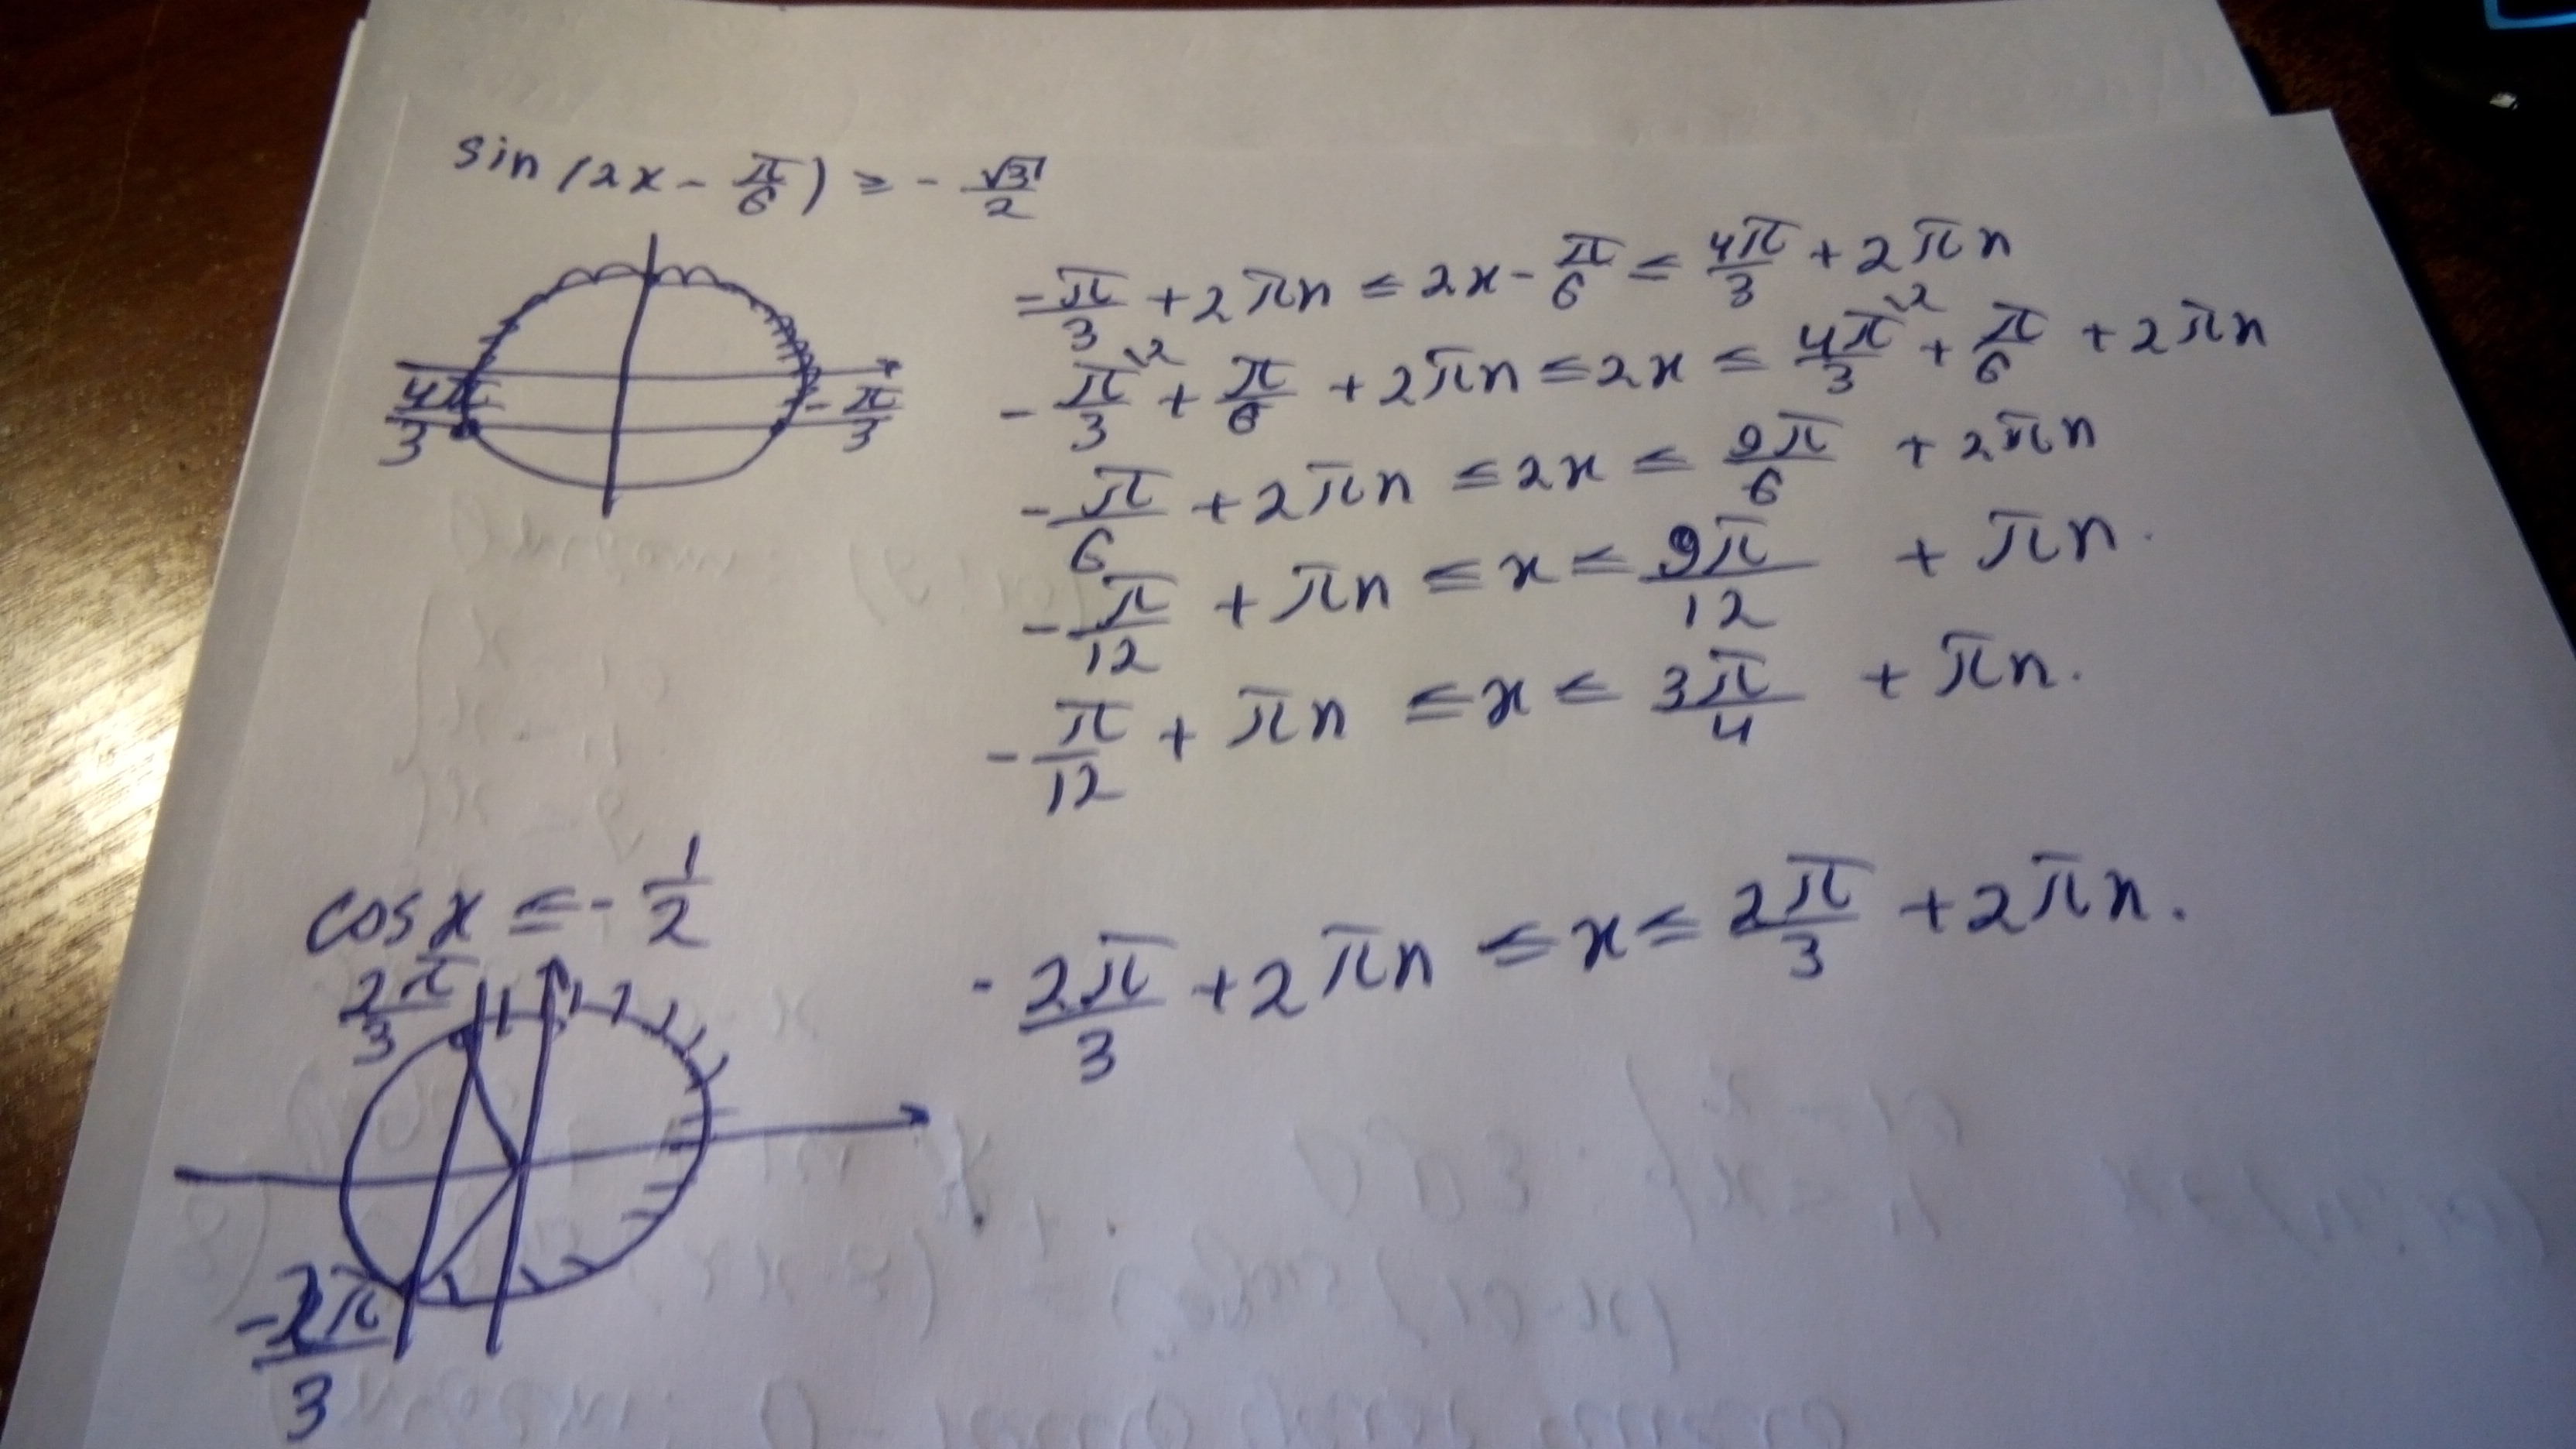 sin(2x - π/6) ≥ - √3/2
4π/3
-π/3
-π/3 + 2πn ≤ 2x - π/6 ≤ 4π/3 + 2πn
-π/3 \2 + π/6 + 2πn ≤ 2x ≤ 4π/3 \2 + π/6 + 2πn
-π/6 + 2πn ≤ 2x ≤ 9π/6 + 2πn
-π/12 + πn ≤ x ≤ 9π/12 + πn.
-π/12 + πn ≤ x ≤ 3π/4 + πn.
cosx ≤ - 1/2
2π/3
-2π/3
-2π/3 + 2πn ≤ x ≤ 2π/3 + 2πn.